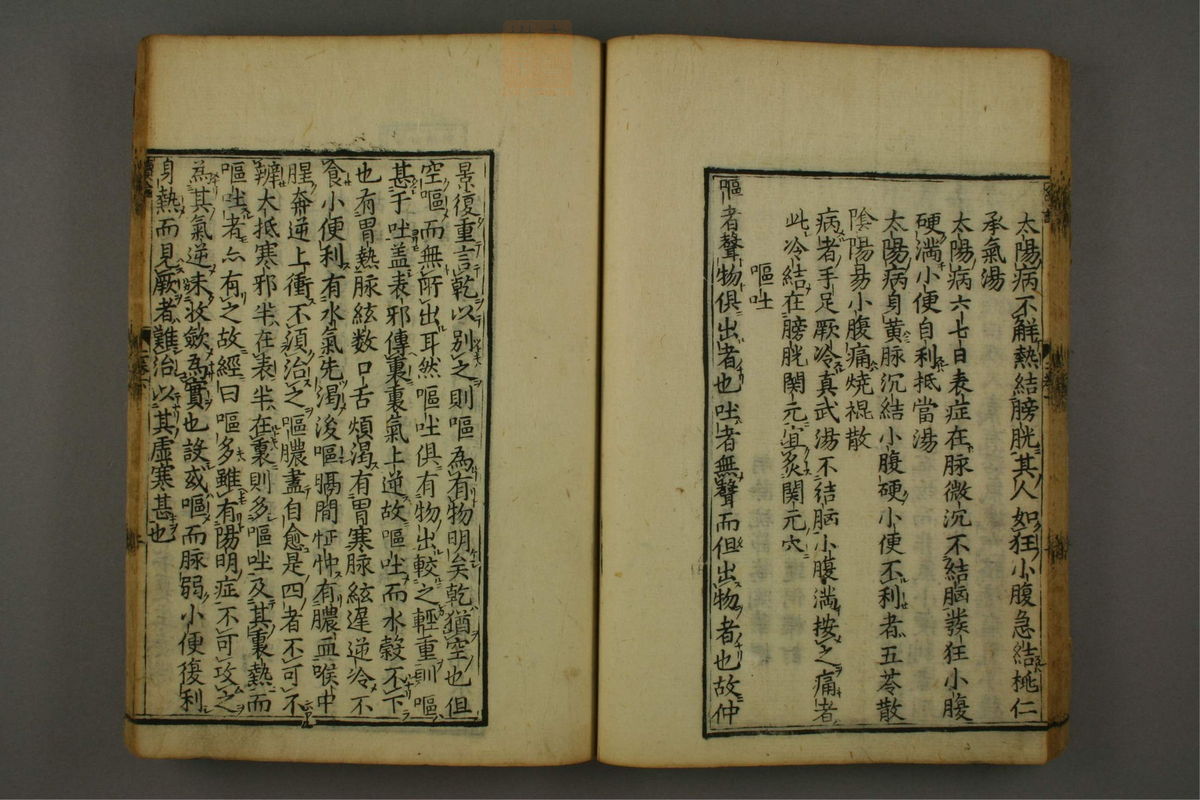 太陽病不解熱結膀胱其人如狂小腹急結桃仁
承氣湯
太陽病六七日表症在脉微沉不結胸發狂小腹
硬満小便自利抵當湯
太陽病身黄脉沉結小腹硬小便不利者五苓散
陰陽昜小腹痛燒裩散
病者手足厥冷真武湯不結胸小腹満按之痛者
此冷結在膀胱関元宜灸関元穴
嘔吐
嘔者聲物俱出者也吐者無聲而但出物者也故仲
景復重言乾以别之則嘔為有物明矣乾猶空也但
空嘔而無所出耳然嘔吐俱有物出較之輕重則嘔
甚于吐盖表邪傳裏裏氣上逆故嘔吐而水穀不下
也有胃熱脉絃数口舌煩渴有胃寒脉絃遲逆冷不
食小便利有水氣先渴後嘔膈間怔忡有膿血喉中
腥奔逆上衝不須治之嘔膿盡自愈是四者不可不
辨大抵寒邪半在表半在裏則多嘔吐及其裏熱而
嘔吐者亦有之故經曰嘔多雖有陽明症不可攻之
為其氣逆未收斂為實也設或嘔而脉弱小便復利
身熱而見厥者難治以其虛寒甚也